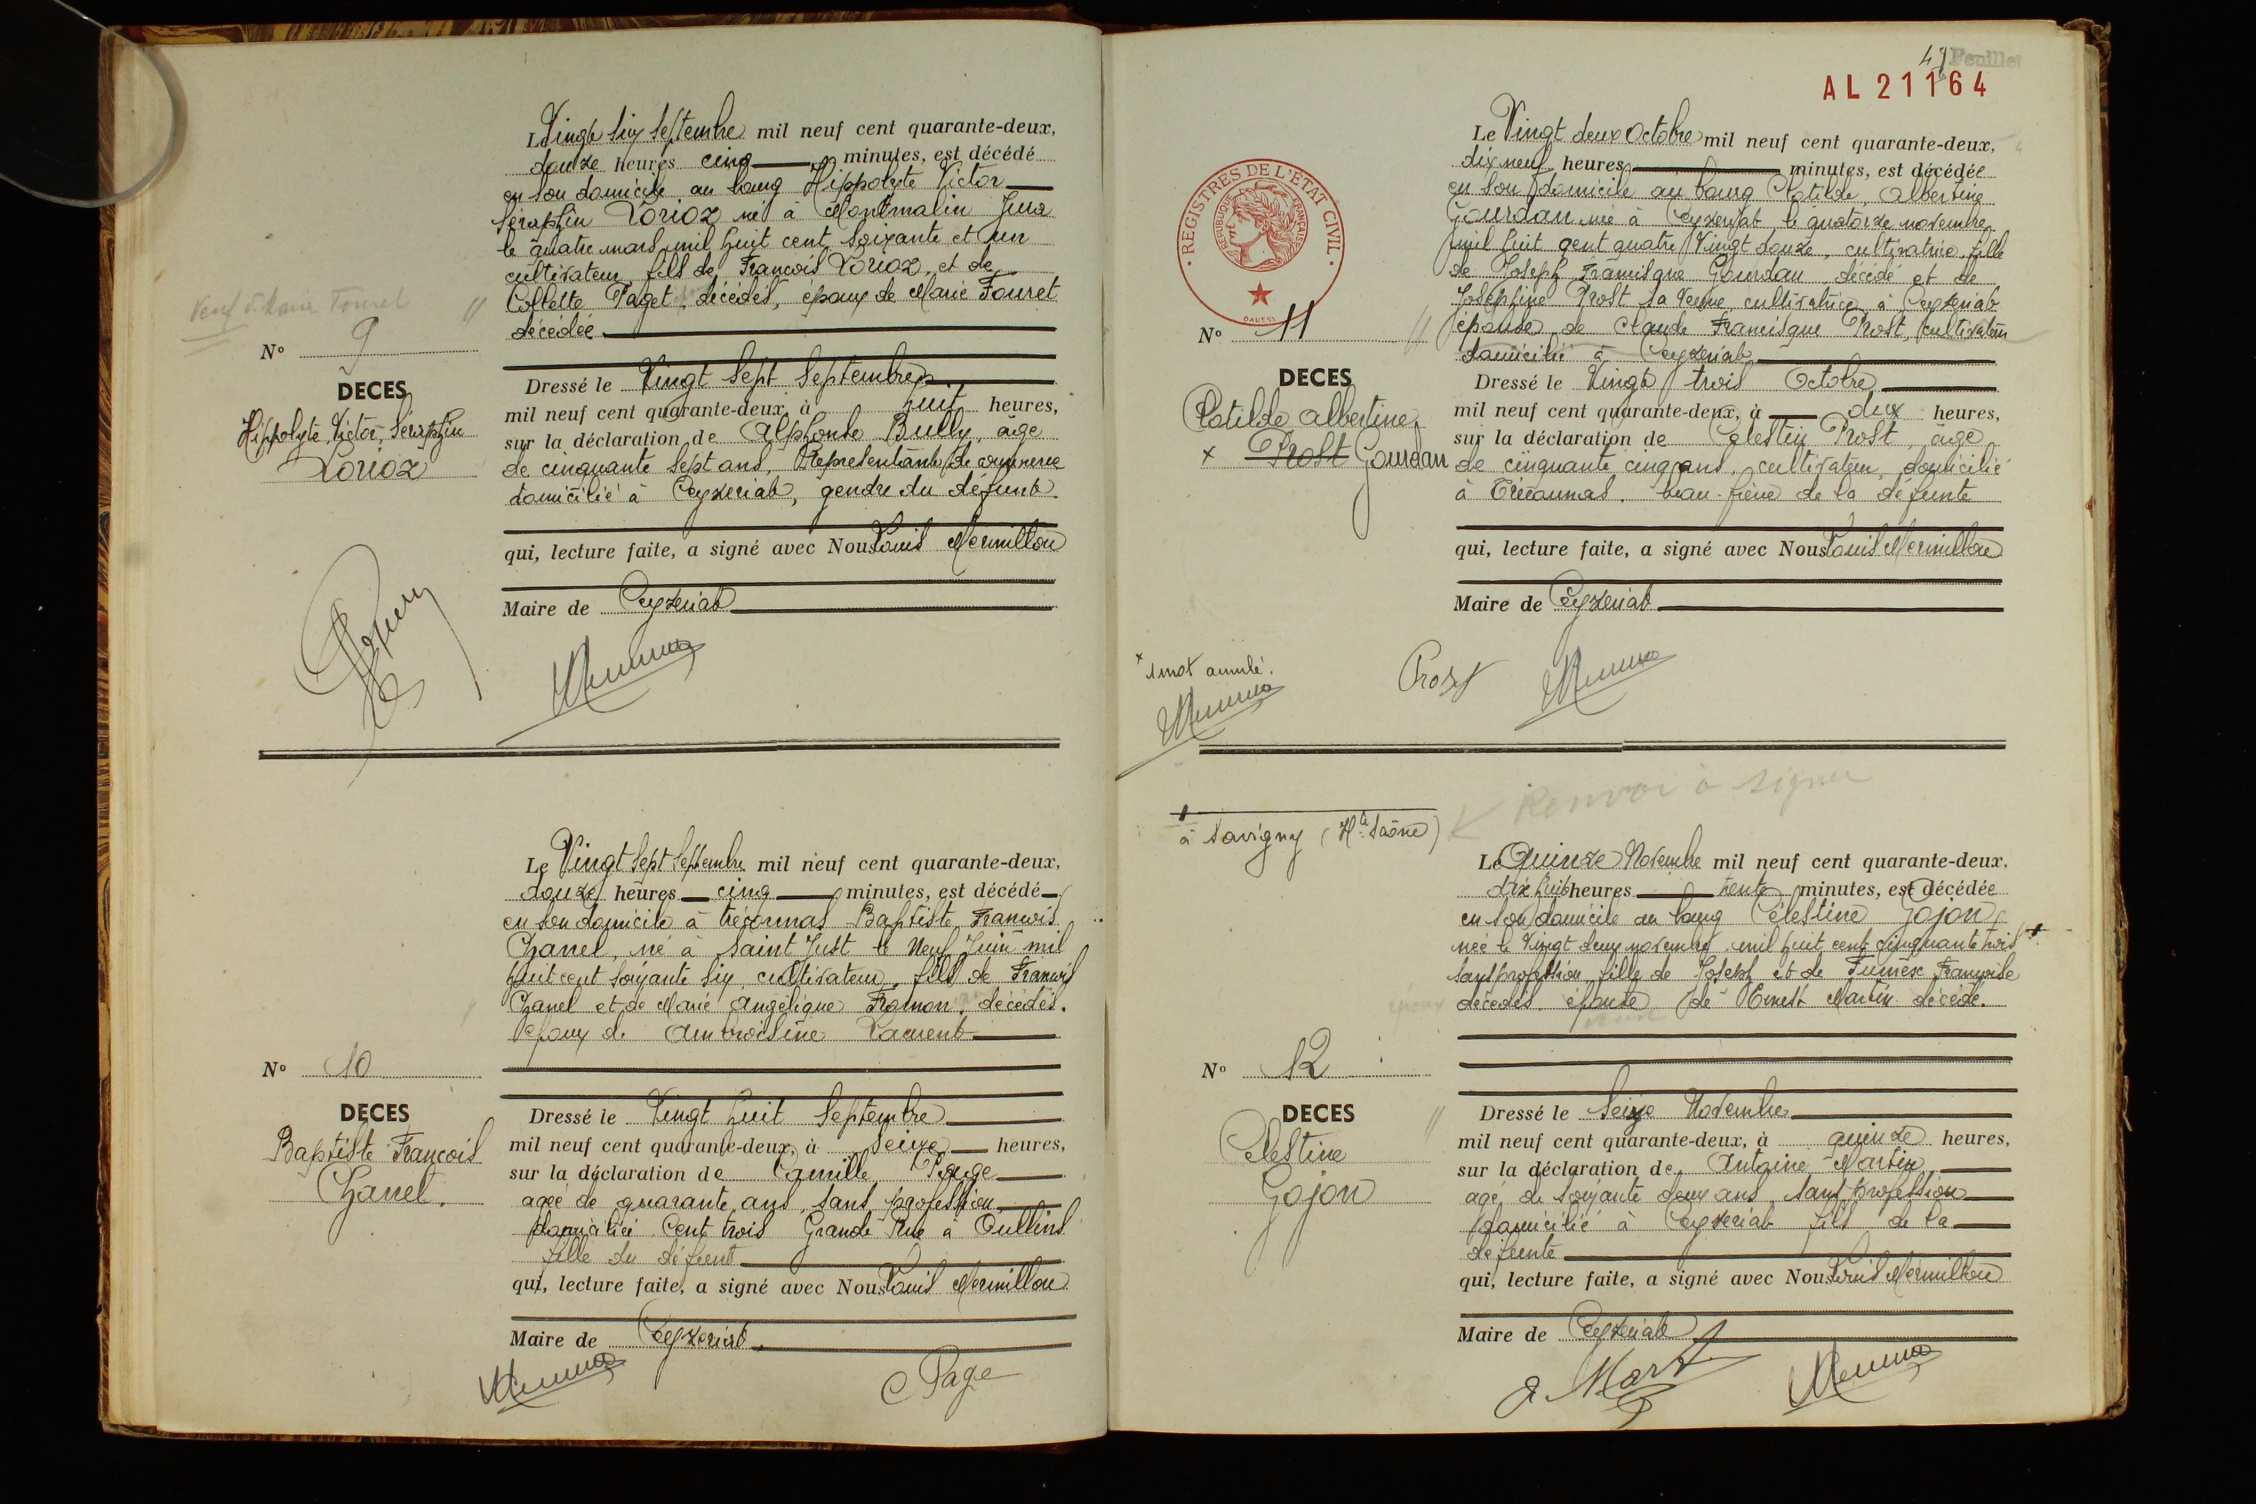 Veuf de Marie Fouret
N° 9
DECES
Hippolyte, Victor, Séraphin
Lorioz
Le Vingt Six Septembre mil neuf cent quarante-deux,
douze heures cinq minutes, est décédé
en son domicile au bourg Hippolyte Victor
Séraphin Lorioz né à Montmalin Jura
le quatre mars mil huit cent soixante et un
cultivateur, fils de François Lorioz, et de
Collette Paget, décédés, époux de Marie Fouret
décédée
Dressé le Vingt Sept Septembre
mil neuf cent quarante-deux, à huit heures,
sur la déclaration de Alphonse Bully, âgé
de cinquante sept ans, Représentant de commerce
domicilié à Ceyzeriat, gendre du défunt.
qui, lecture faite, a signé avec Nous Louis Mermillon
Maire de Ceyzeriat
N° 10
DECES
Baptiste François
Chanel.
Le Vingt Sept Septembre mil neuf cent quarante-deux,
douze heures cinq minutes, est décédé
en son domicile à trécounas Baptiste François
Chanel, né à Saint Just le Neuf Juin mil
huit cent soixante six, cultivateur, fils de François
Chanel et de Marie Angélique Framon, décédés.
époux de Ambroisine Laurent
Dressé le Vingt huit Septembre
mil neuf cent quarante-deux, à seize heures,
sur la déclaration de Camille Page
agée de quarante ans, sans profession
domiciliée Cent trois Grande Rue à Oullins
fille du défunt
qui, lecture faite, a signé avec Nous Louis Mermillon
Maire de Ceyzeriat.
C Page
49 Feuillet
AL 21164
REGISTRES DE L'ETAT CIVIL
REPUBLIQUE FRANÇAISE
N° 11
DECES
Clotilde Albertine
x Prost Gourdan
Le Vingt deux Octobre mil neuf cent quarante-deux,
dix neuf heures minutes, est décédée
en son domicile au bourg Clotilde, Albertine
Gourdan née à Ceyzeriat le quatorze novembre
mil huit cent quatre Vingt douze, cultivatrice, fille
de Joseph Francisque Gourdan décédé et de
Joséphine Prost sa Veuve, cultivatrice à Ceyzeriat
épouse de Claude Francisque Prost, cultivateur
domicilié à Ceyzeriat
Dressé le Vingt trois Octobre
mil neuf cent quarante-deux, à dix heures,
sur la déclaration de Célestin Prost, âgé
de cinquante cinq ans, cultivateur, domicilié
à Trécounas. beau-frère de la défunte
qui, lecture faite, a signé avec Nous Louis Mermillon
Maire de Ceyzeriat
x 1 mot annulé.
Prost
Renvoi à signer
à Savigny (Hte Saône)
N° 12
DECES
Celestine
Gojon
Le Quinze Novembre mil neuf cent quarante-deux,
dix huit heures trente minutes, est décédée
en son domicile au bourg Célestine Gojon,
née le Vingt deux novembre mil huit cent cinquante trois
sans profession, fille de Joseph et de Fumex Françoise
décédés épouse de Ernest Martin décédé.
Dressé le Seize Novembre
mil neuf cent quarante-deux, à quinze heures,
sur la déclaration de Antoine Martin,
agé de soixante deux ans, sans profession
domicilié à Ceyzeriat fils de la
défunte
qui, lecture faite, a signé avec Nous Louis Mermillon
Maire de Ceyzeriat